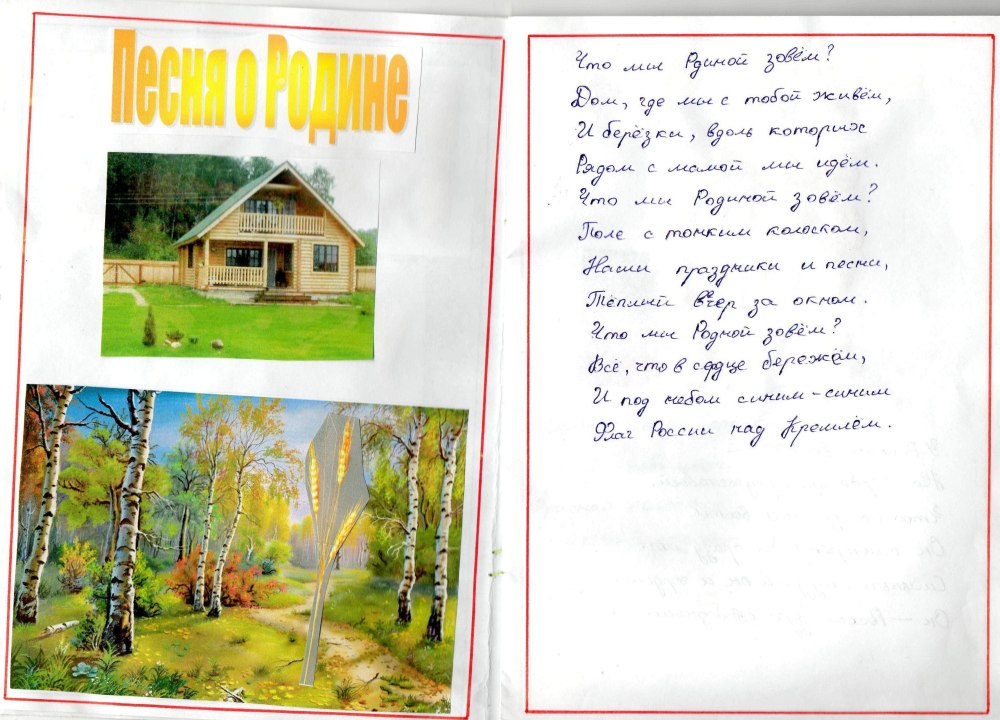 Песня о Родине
Что мы Рдиной зовём?
Дом, где мы с тобой живём,
И берёзки, вдоль которых
Рядом с мамой мы идём.
Что мы Родиной зовём?
Поле с тонким колоском,
Наши праздники и песни,
Тёплый вчер за окном.
Что мы Родной зовём?
Всё, что в сердце бережём,
И под небом синим-синим
Флаг России над Кремлём.